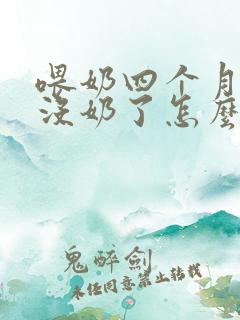 喂奶四个月
没奶了怎么
鬼醉剑
未经同意禁止转载